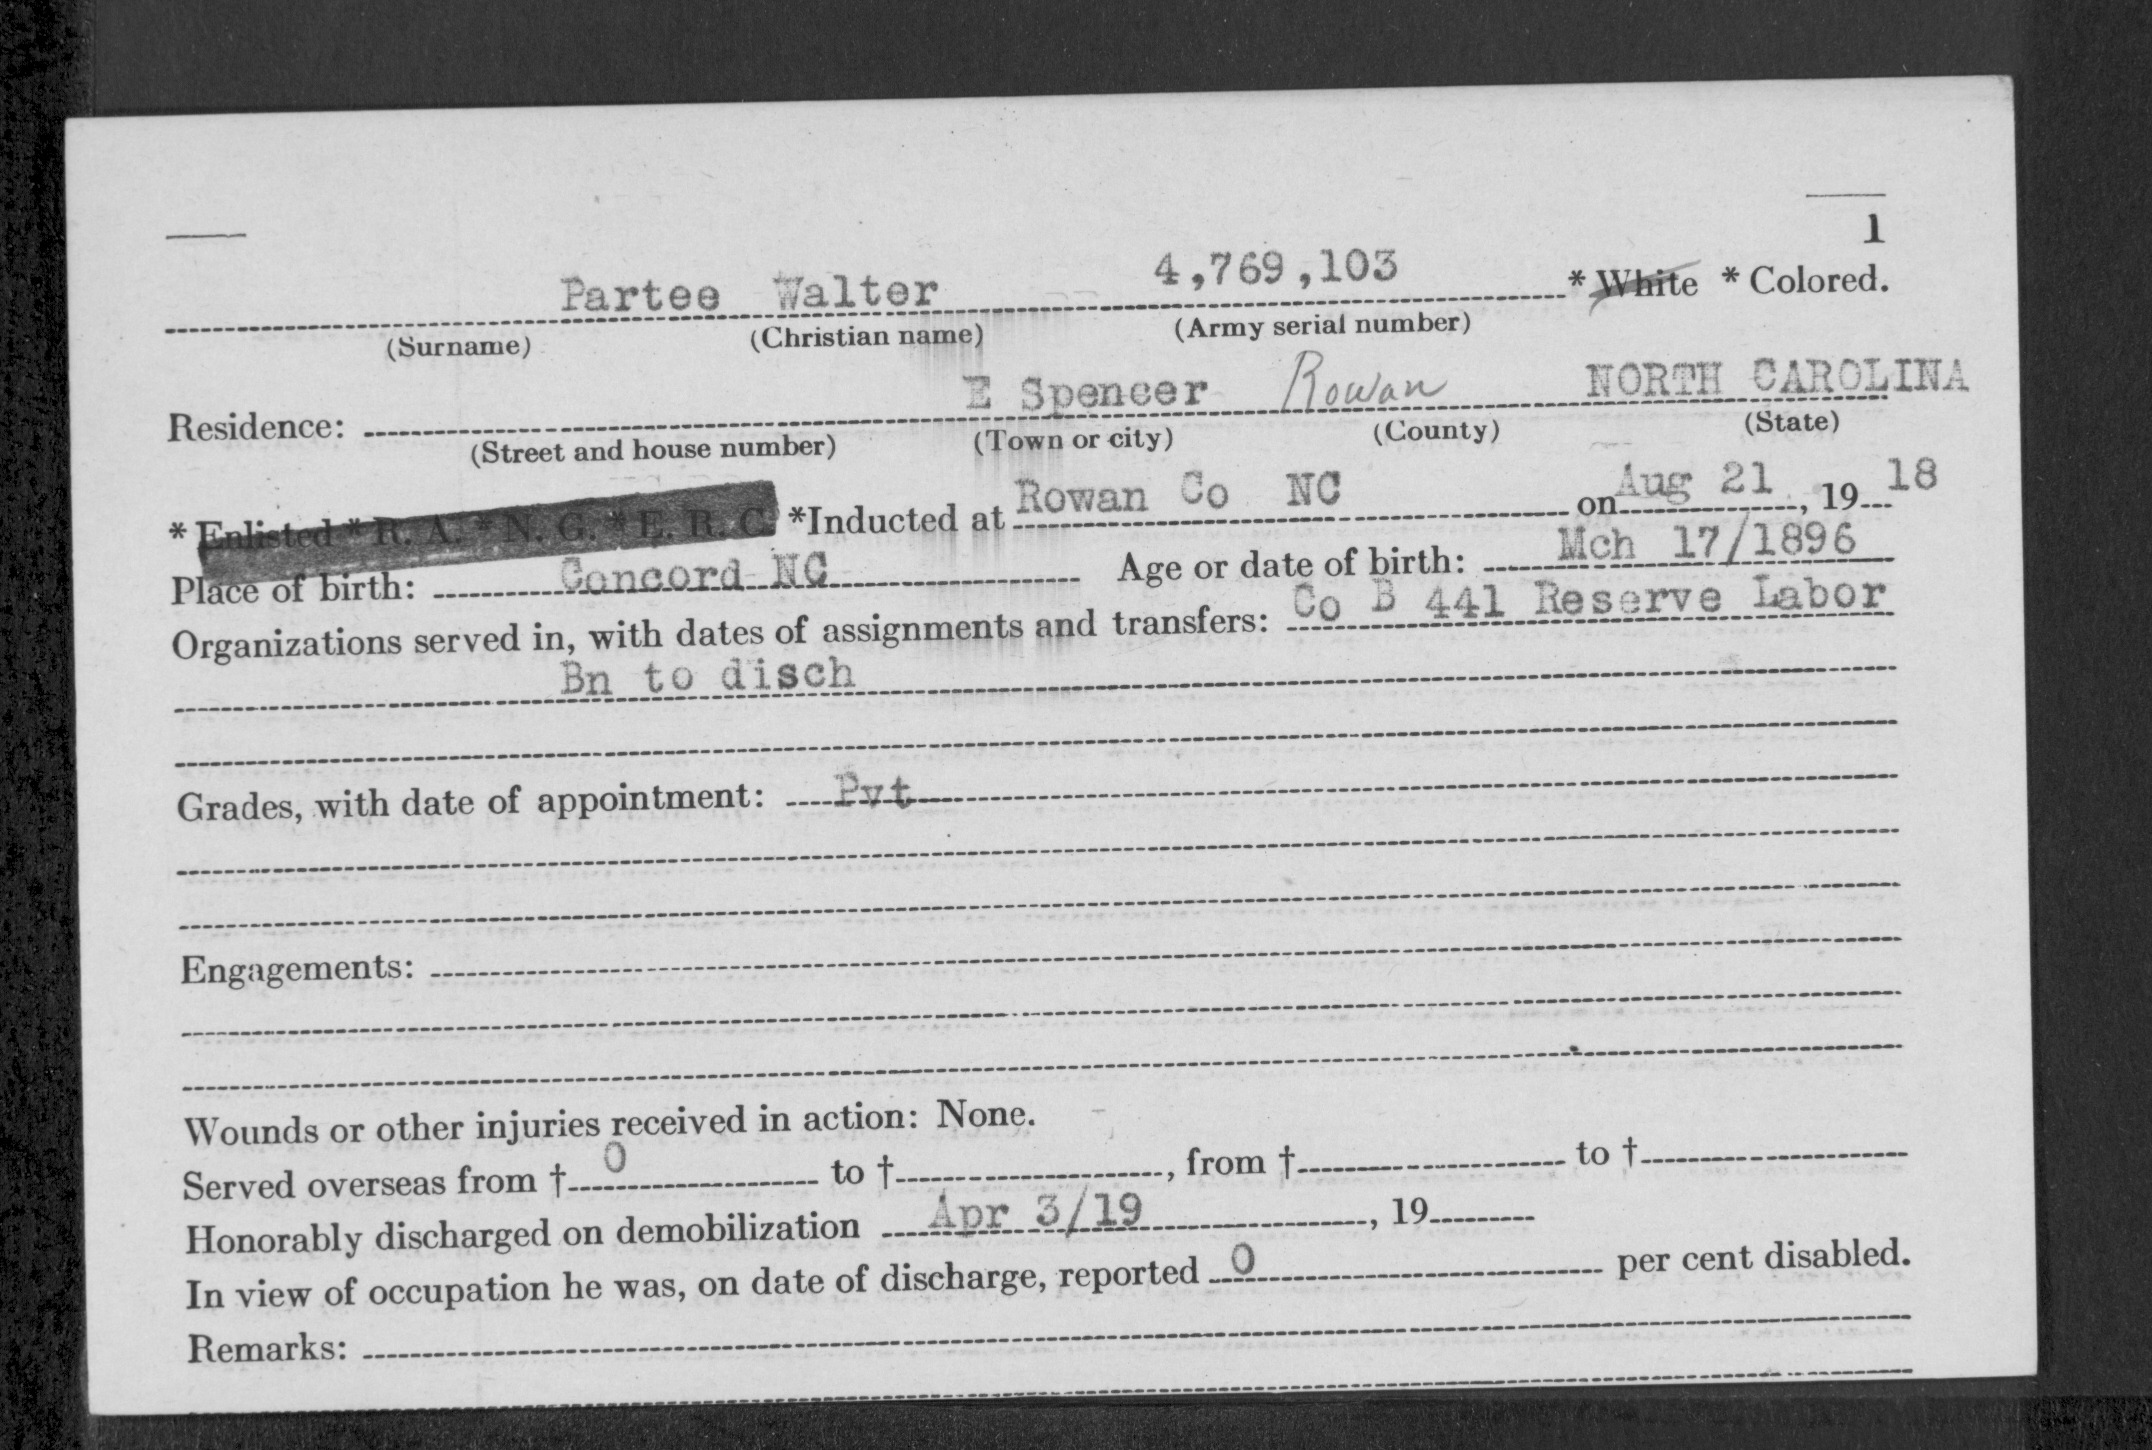 1
Partee Walter 4,769,103 * White * Colored.
(Surname) (Christian name) (Army serial number)
Residence: E Spencer Rowan NORTH CAROLINA
(Street and house number) (Town or city) (County) (State)
* Enlisted * R. A. * N. G. * E. R. C. *Inducted at Rowan Co NC on Aug 21, 19 18
Place of birth: Concord NC Age or date of birth: Mch 17/1896
Organizations served in, with dates of assignments and transfers: Co B 441 Reserve Labor
Bn to disch
Grades, with date of appointment: Pvt
Engagements:
Wounds or other injuries received in action: None.
Served overseas from † 0 to †, from † to †
Honorably discharged on demobilization Apr 3/19, 19
In view of occupation he was, on date of discharge, reported 0 per cent disabled.
Remarks: